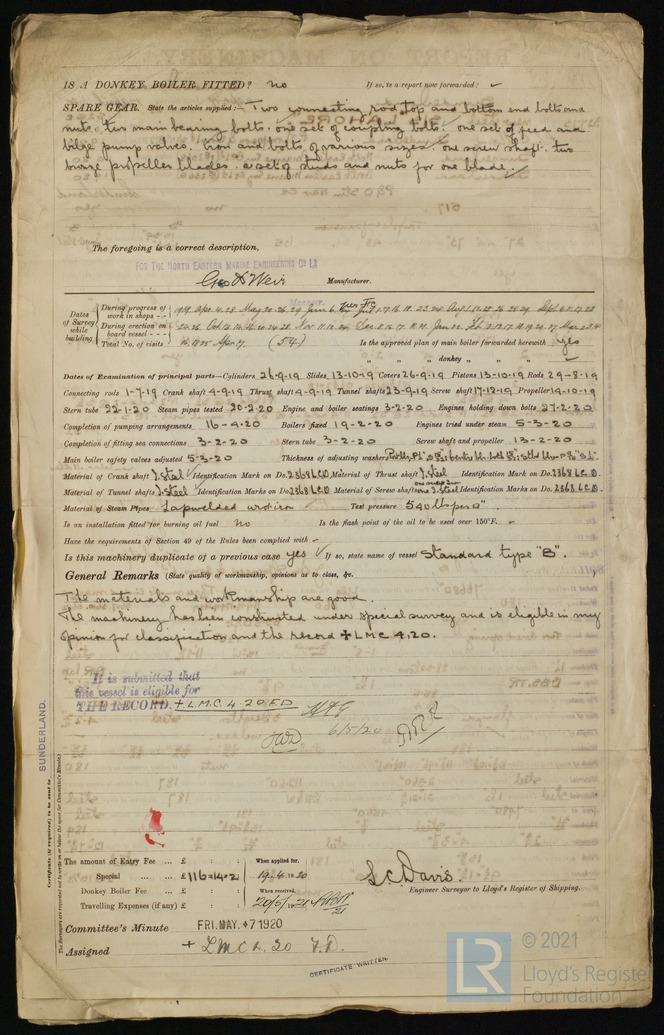 IS A DONKEY BOILER FITTED? no If so, is a report now forwarded? ✓
SPARE GEAR. State the articles supplied:— Two connecting rod top and bottom end bolts and
nuts. two main bearing bolts. one set of coupling bolts. one set of feed and
bilge pump valves. iron and bolts of various sizes. one screw shaft. two
propeller blades. set of studs and nuts for one blade.
The foregoing is a correct description,
FOR THE NORTH EASTERN MARINE ENGINEERING Co Ld
Geo D Weir Manufacturer.
Dates of Survey while building
During progress of work in shops - -
During erection on board vessel - - -
Total No. of visits (54) Is the approved plan of main boiler forwarded herewith yes
" " " donkey " " " ✓
Dates of Examination of principal parts—Cylinders 26-9-19 Slides 13-10-19 Covers 26-9-19 Pistons 13-10-19 Rods 29-8-19
Connecting rods 1-7-19 Crank shaft 4-9-19 Thrust shaft 4-9-19 Tunnel shafts 23-9-19 Screw shaft 17-12-19 Propeller 14-10-19
Stern tube 22-1-20 Steam pipes tested 20-2-20 Engine and boiler seatings 3-2-20 Engines holding down bolts 27-2-20
Completion of pumping arrangements 16-4-20 Boilers fixed 19-2-20 Engines tried under steam 5-3-20
Completion of fitting sea connections 3-2-20 Stern tube 3-2-20 Screw shaft and propeller 13-2-20
Main boiler safety valves adjusted 5-3-20 Thickness of adjusting washers
Material of Crank shaft I. Steel Identification Mark on Do. 2368 LCD Material of Thrust shaft I. Steel Identification Mark on Do. 2368 LCD
Material of Tunnel shafts I. Steel Identification Marks on Do. 2368 LCD Material of Screw shafts I. Steel Identification Marks on Do. 2368 LCD
Material of Steam Pipes Lapwelded wrot iron Test pressure 540 lbs per □"
Is an installation fitted for burning oil fuel no Is the flash point of the oil to be used over 150°F. ✓
Have the requirements of Section 49 of the Rules been complied with ✓
Is this machinery duplicate of a previous case yes ✓ If so, state name of vessel Standard type "B".
General Remarks (State quality of workmanship, opinions as to class, &c.
The materials and workmanship are good.
The machinery has been constructed under special survey and is eligible in my
opinion for classification and the record + LMC 4,20.
It is submitted that
this vessel is eligible for
THE RECORD. + L.M.C. 4.20 FD
6/5/20
SUNDERLAND.
Certificate (if required) to be sent to
The Surveyors are requested not to write on or below the space for Committee's Minute.
The amount of Entry Fee ... £ : : When applied for,
Special ... ... £ 116:14:2 19.4.1920
Donkey Boiler Fee ... £ : : When received,
Travelling Expenses (if any) £ : :
S.C. Davis.
Engineer Surveyor to Lloyd's Register of Shipping.
Committee's Minute FRI. MAY. 7 1920
Assigned + LMC 4.20 F.D.
CERTIFICATE WRITTEN.
LR
© 2021
Lloyd's Register
Foundation